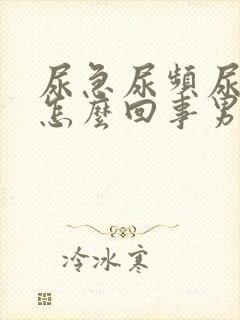 尿急尿頻尿
怎麼回事男
冷冰寒